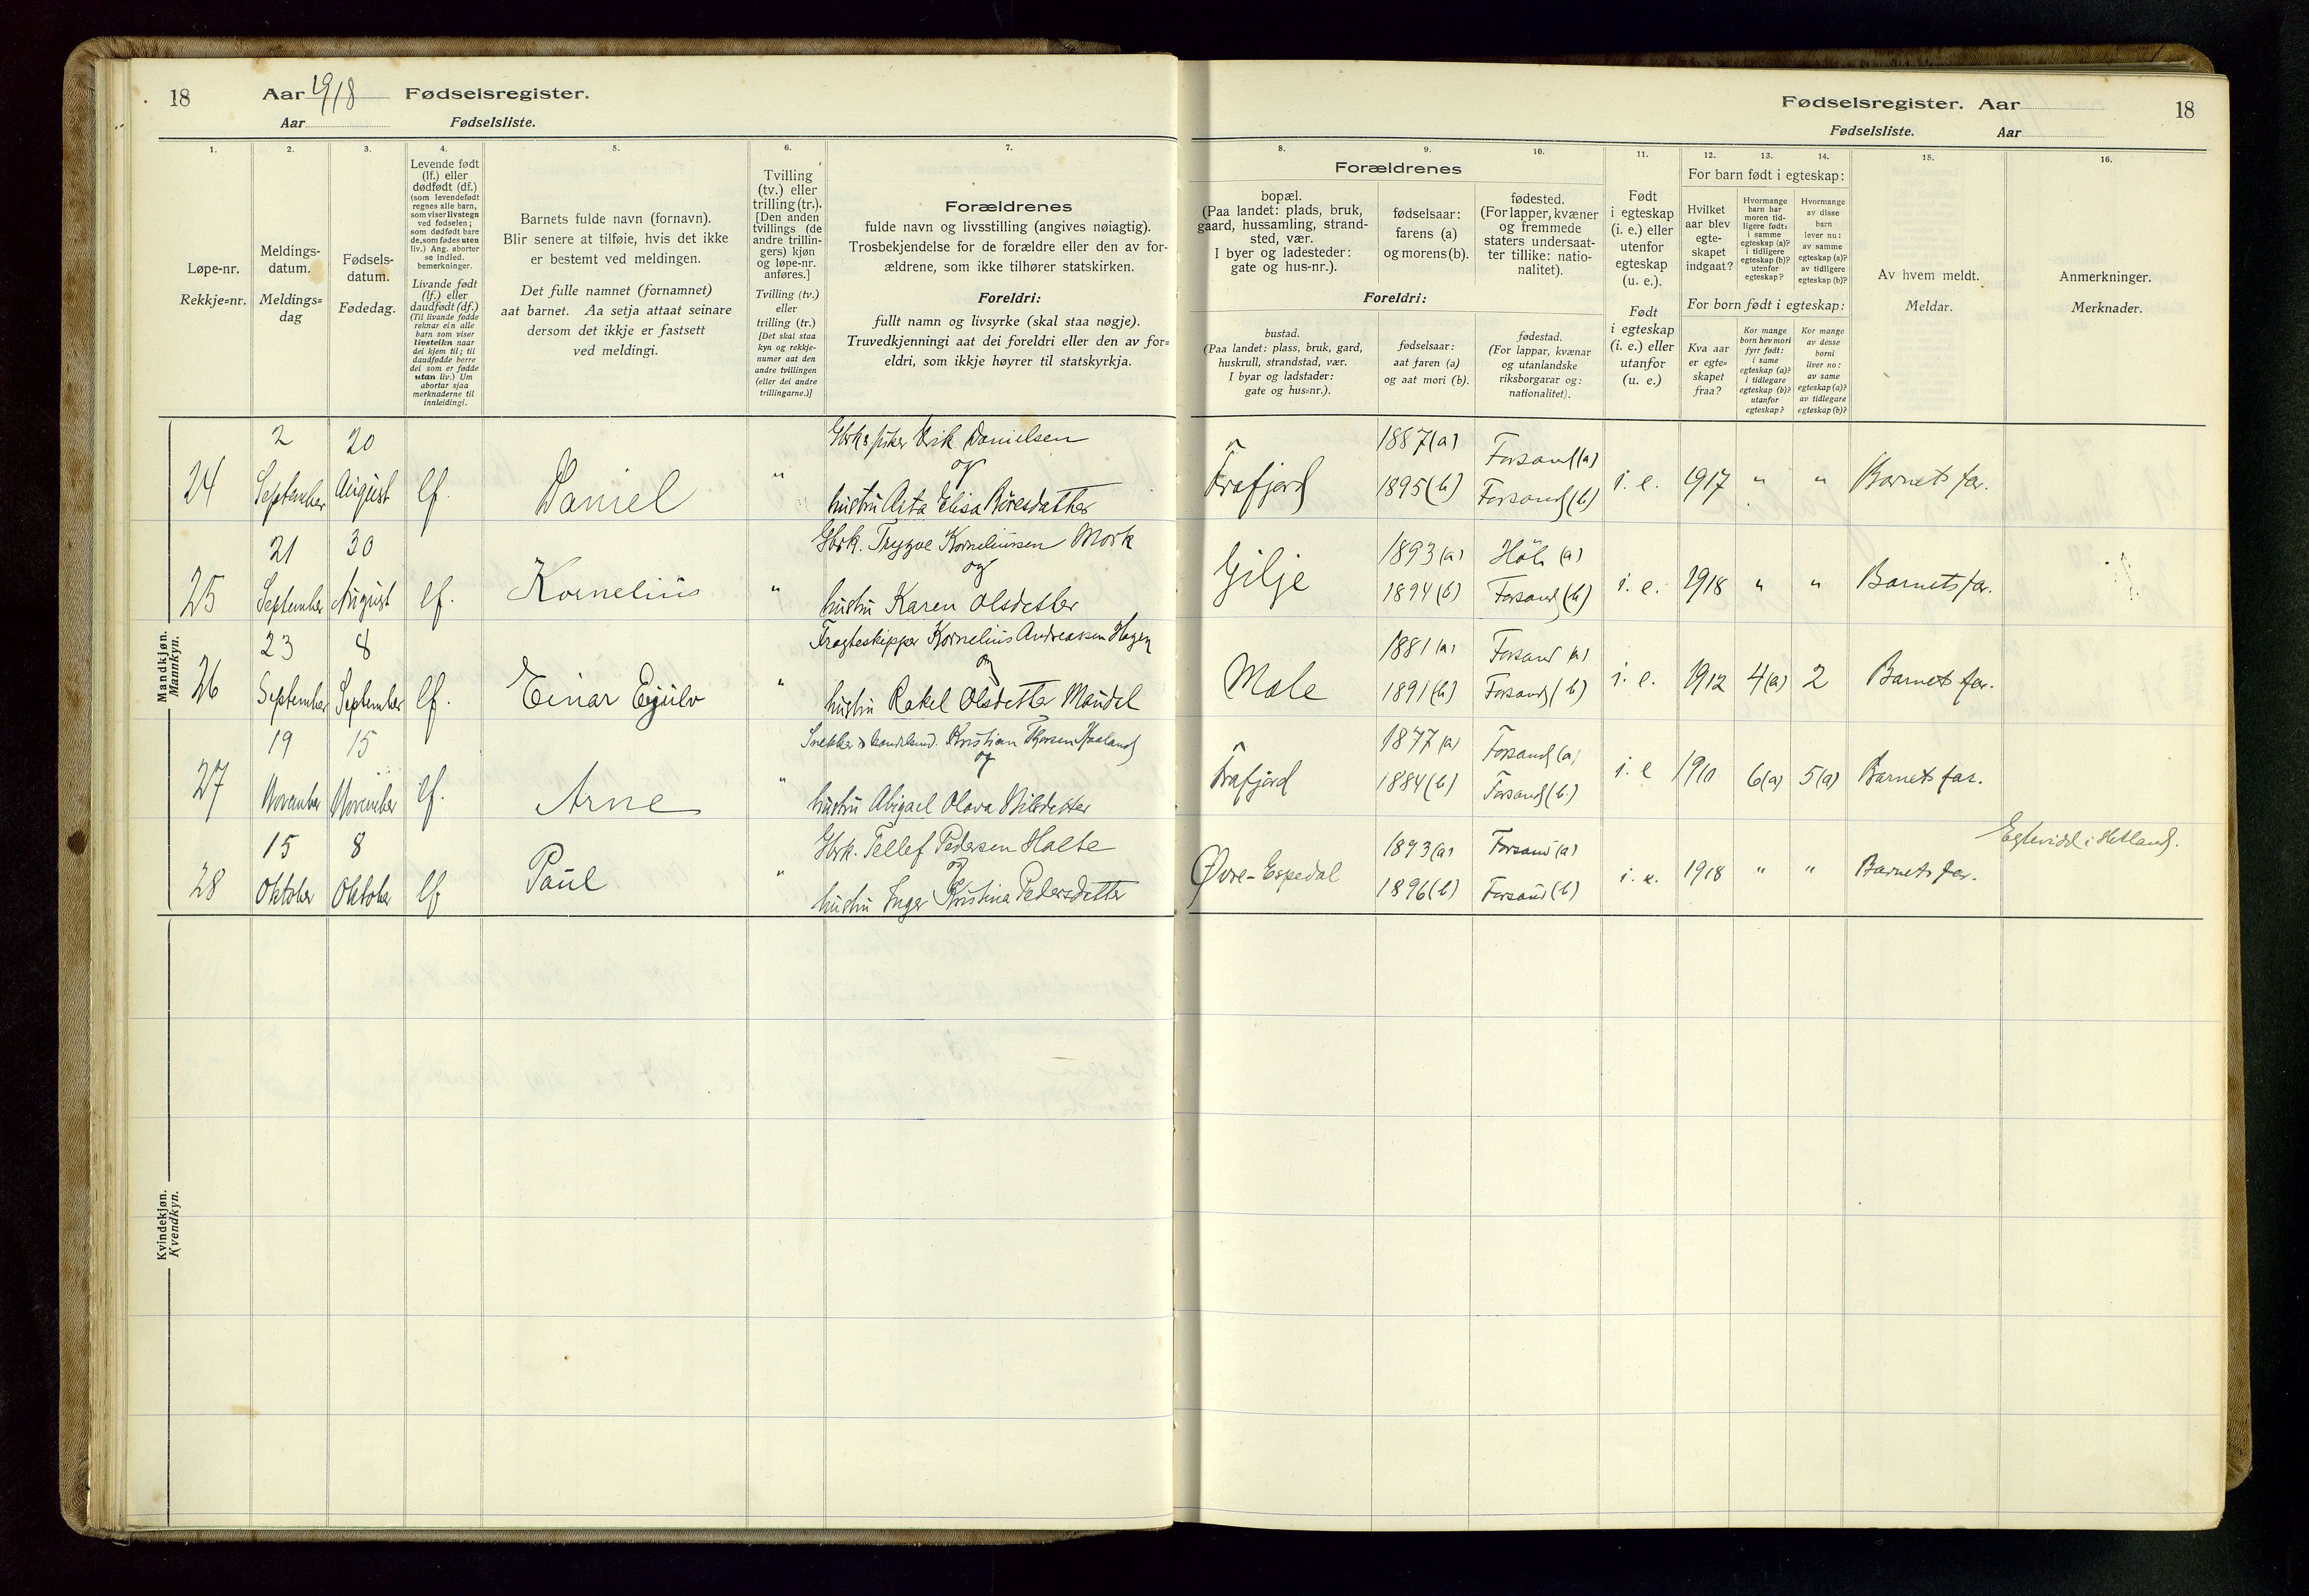 18 Aar 1918 Fødselsregister.
Aar Fødselsliste.
Fødselsregister. Aar 18
Fødselsliste. Aar
1. 2. 3. 4. 5. 6. 7. 8. 9. 10. 11. 12. 13. 14. 15. 16.
Løpe-nr.
Rekkje=nr.
Meldings-
datum.
Meldings=
dag
Fødsels-
datum.
Fødedag.
Levende født
(lf.) eller
dødfødt (df.)
(som levendefødt
regnes alle barn,
som viser livstegn
ved fødselen;
som dødfødt bare
de, som fødes uten
liv.) Ang. aborter
se indled.
bemerkninger.
Livande født
(lf.) eller
daudfødt (df.)
(Til livande fødde
reknar ein alle
barn som viser
livsteikn naar
dei kjem til; til
daudfødde berre
dei som er fødde
utan liv.) Um
abortar sjaa
merknaderne til
innleidingi.
Barnets fulde navn (fornavn).
Blir senere at tilføie, hvis det ikke
er bestemt ved meldingen.
Det fulle namnet (fornamnet)
aat barnet. Aa setja attaat seinare
dersom det ikkje er fastsett
ved meldingi.
Tvilling
(tv.) eller
trilling (tr.).
[Den anden
tvillings (de
andre trillin-
gers) kjøn
og løpe-nr.
anføres.]
Tvilling (tv.)
eller
trilling (tr.)
[Det skal staa
kyn og rekkje-
numer aat den
andre tvillingen
(eller dei andre
trillingarne.)]
Forældrenes
fulde navn og livsstilling (angives nøiagtig).
Trosbekjendelse for de forældre eller den av for-
ældrene, som ikke tilhører statskirken.
Foreldri:
fullt namn og livsyrke (skal staa nøgje).
Truvedkjenningi aat dei foreldri eller den av for=
eldri, som ikkje høyrer til statskyrkja.
Forældrenes
bopæl.
(Paa landet: plads, bruk,
gaard, hussamling, strand-
sted, vær.
I byer og ladesteder:
gate og hus-nr.).
fødselsaar:
farens (a)
og morens (b).
fødested.
(For lapper, kvæner
og fremmede
staters undersaat-
ter tillike: natio-
nalitet).
Foreldri:
bustad.
(Paa landet: plass, bruk, gard,
huskrull, strandstad, vær.
I byar og ladstader:
gate og hus=nr.).
fødselsaar:
aat faren (a)
og aat mori (b).
fødestad.
(For lappar, kvænar
og utanlandske
riksborgarar og:
nationalitet).
Født
i egteskap
(i. e.) eller
utenfor
egteskap
(u. e.).
Født
i egteskap
(i. e.) eller
utanfor
egteskap
(u. e.)
For barn født i egteskap:
Hvilket
aar blev
egte-
skapet
indgaat?
Hvormange
barn har
moren tid-
ligere født:
i samme
egteskap (a)?
i tidligere
egteskap (b)?
utenfor
egteskap?
Hvormange
av disse
barn
lever nu:
av samme
egteskap (a)?
av tidligere
egteskap (b)?
For born født i egteskap:
Kva aar
er egte-
skapet
fraa?
Kor mange
born hev mori
fyrr født:
i same
egteskap (a)?
i tidlegare
egteskap (b)?
utanfor
egteskap?
Kor mange
av desse
borni
liver no:
av same
egteskap (a)?
av tidlegare
egteskap (b)?
Av hvem meldt.
Meldar.
Anmerkninger.
Merknader.
Mandkjøn.
Mannkyn.
24 2 September 20 August lf. Daniel " Danielsen
og
hustru Elisa
Frafjord 1887(a) 1895(b) Forsand(a) Forsand(b) i. e. 1917 " " Barnets far.
25 21 September 30 August lf. Kornelius " Gbrk. Trygve Korneliussen Mork
og
hustru Karen Olsdatter
Gilje 1893(a) 1894(b) Höle (a) Forsand (b) i. e. 1918 " " Barnets far.
26 23 September 8 September lf. Einar Ejulv " Fragteskipper Kornelius Andreassen Hagen
og
hustru Rakel Olsdatter Maudal
Mæle 1881(a) 1891(b) Forsand (a) Forsand (b) i. e. 1912 4(a) 2 Barnets far.
27 19 November 15 November lf. Arne " Snekker & handelsmd. Kristian Haaland
og
hustru Abigael Olava Nilsdatter
Frafjord 1877(a) 1884(b) Forsand (a) Forsand (b) i. e 1910 6(a) 5(a) Barnets far.
28 15 Oktober 8 Oktober lf Paul " Gbrk. Tellef Pedersen Halte
og
hustru Inger Kristina Pedersdatter
Øvre-Espedal 1893(a) 1896(b) Forsand (a) Forsand (b) i. e. 1918 " " Barnets far.
Egtevidd i Hetland.
Kvindekjøn.
Kvendkyn.